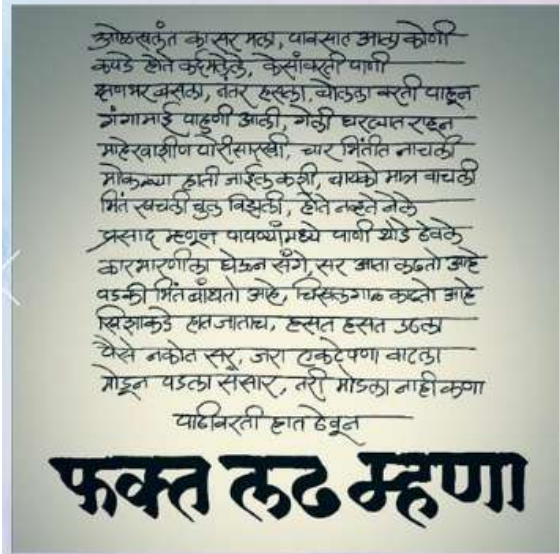 ओळखलंत का सर मला, पावसात आला कोणी
कपडे होते कर्दमलेले, केसांवरती पाणी
क्षणभर बसला, नंतर हसला, बोलला वरती पाहून
गंगामाई पाहुणी आली, गेली घरट्यात राहून
माहेरवाशीण पोरीसारखी, चार भिंतीत नाचली
मोकळ्या हाती जाईल कशी, बायको मात्र वाचली
भिंत खचली चुल विझली, होते नव्हते नेले
प्रसाद म्हणून पापण्यांमध्ये पाणी थोडे ठेवले
कारभारणीला घेऊन संगे, सर आता लढतो आहे
पडकी भिंत बांधतो आहे, चिखलगाळ काढतो आहे
खिशाकडे हात जाताच, हसत हसत उठला
पैसे नकोत सर, जरा एकटेपणा वाटला
मोडून पडला संसार, तरी मोडला नाही कणा
पाठीवरती हात ठेवून
फक्त लढ म्हणा